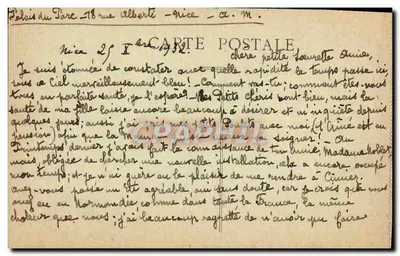 Palais du Parc - 18 rue Alberti - Nice - a. m.
CARTE POSTALE
Nice 25 Xbre 1932.
chère petite Laurette Aimée,
Je suis étonnée de constater avec quelle rapidité le temps passe ici,
sous ce Ciel merveilleusement bleu! Comment vas-tu; comment êtes-vous
tous en parfaite santé, je l'espère? Mes Petits chéris vont bien, mais la
santé de ma fille laisse encore beaucoup à désirer et m'inquiète depuis
quelques jours; aussi j'ai Petits avec moi (l'Aînée est en
pension) afin que la soigner! - Au
Printemps dernier j'avais fait la connaissance de ton Amie, Madame
mais, obligée de chercher une nouvelle installation, cela a encore occupé
mon temps, et je n'ai guère eu le plaisir de me rendre à Cimiez.
avez-vous passé un été agréable, oui sans doute, car je crois que vous
avez eu en Normandie comme dans toute la France, la même
chaleur que nous; j'ai beaucoup regretté de n'avoir pu faire